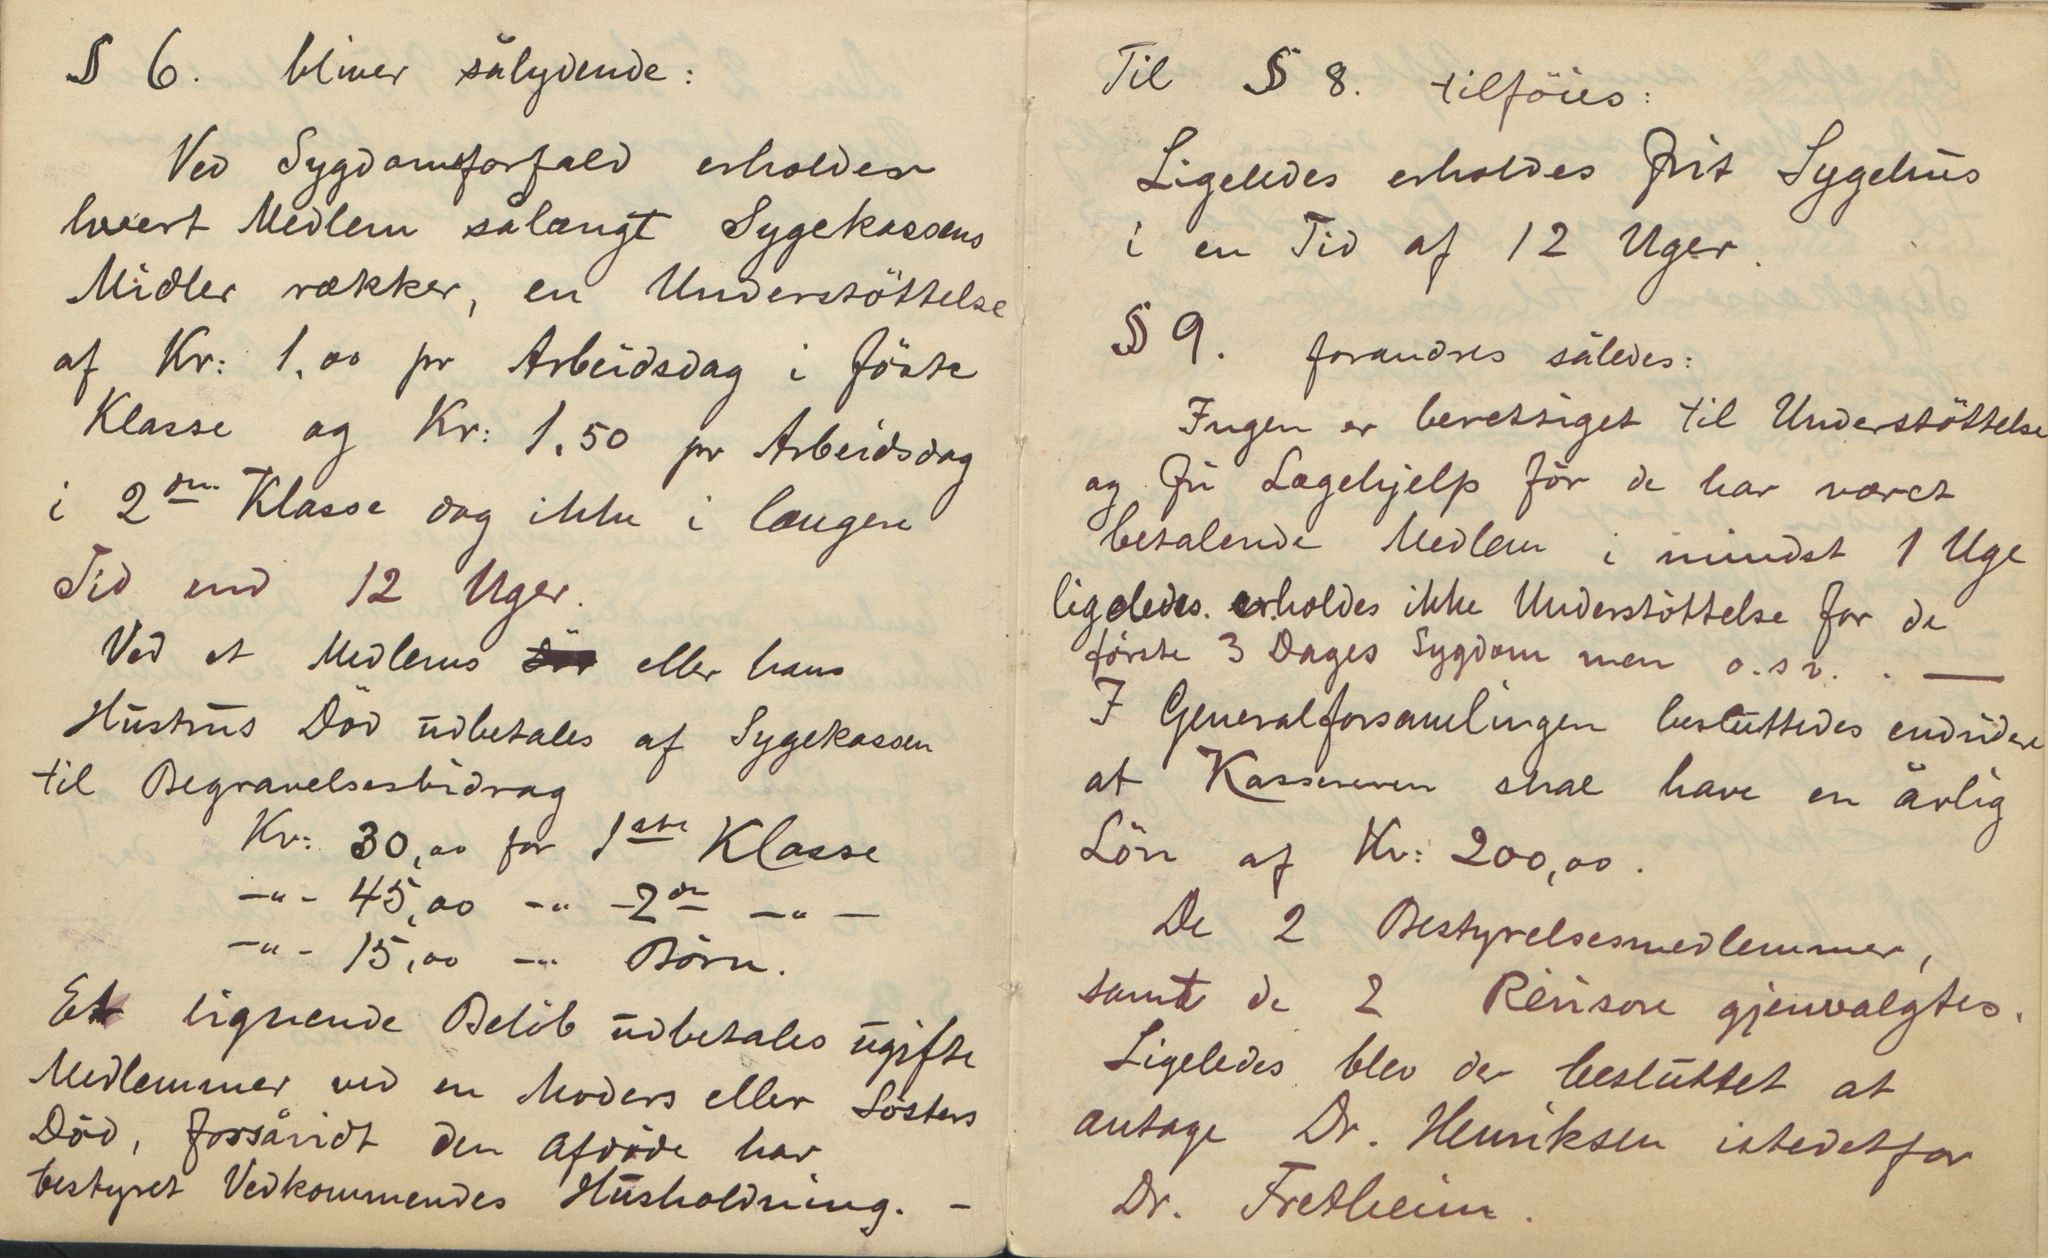 § 6. bliver sålydende:
Ved Sygdomsforfald erholder
hvert Medlem sålængt Sygekassens
Midler rækker, en Understöttelse
af Kr: 1,00 pr Arbeidsdag i föste
Klasse og Kr: 1,50 pr Arbeidsdag
i 2den Klasse dog ikke i længere
Tid end 12 Uger.
Ved et Medlems eller hans
Hustrus Död udbetales af Sygekassen
til Begravelsesbidrag
Kr: 30,00 for 1ste Klasse
-"- 45,00 -"- 2den -"-
-"- 15,00 -"- Börn.
Et lignende Belöb udbetales ugifte
Medlemmer ved en Moders eller Sösters
Död, forsåvidt den afdöde har
bestyret Vedkommendes Husholdning. -
Til § 8. tilföies:
Ligeledes erholdes frit Sygehus
i en Tid af 12 Uger.
§ 9. forandres således:
Ingen er berettiget til Understöttelse
og fri Lægehjelp för de har været
betalende Medlem i mindst 1 Uge
ligeledes erholdes ikke Understöttelse for de
förste 3 Dages Sygdom men o.s.v. . —
I Generalforsamlingen besluttedes endvidere
at Kassereren skal have en årlig
Lön af Kr: 200,00.
De 2 Bestyrelsesmedlemmer,
samt de 2 Revisore gjenvalgtes.
Ligeledes blev der besluttet at
antage Dr. Henriksen istedetfor
Dr. Fretheim.